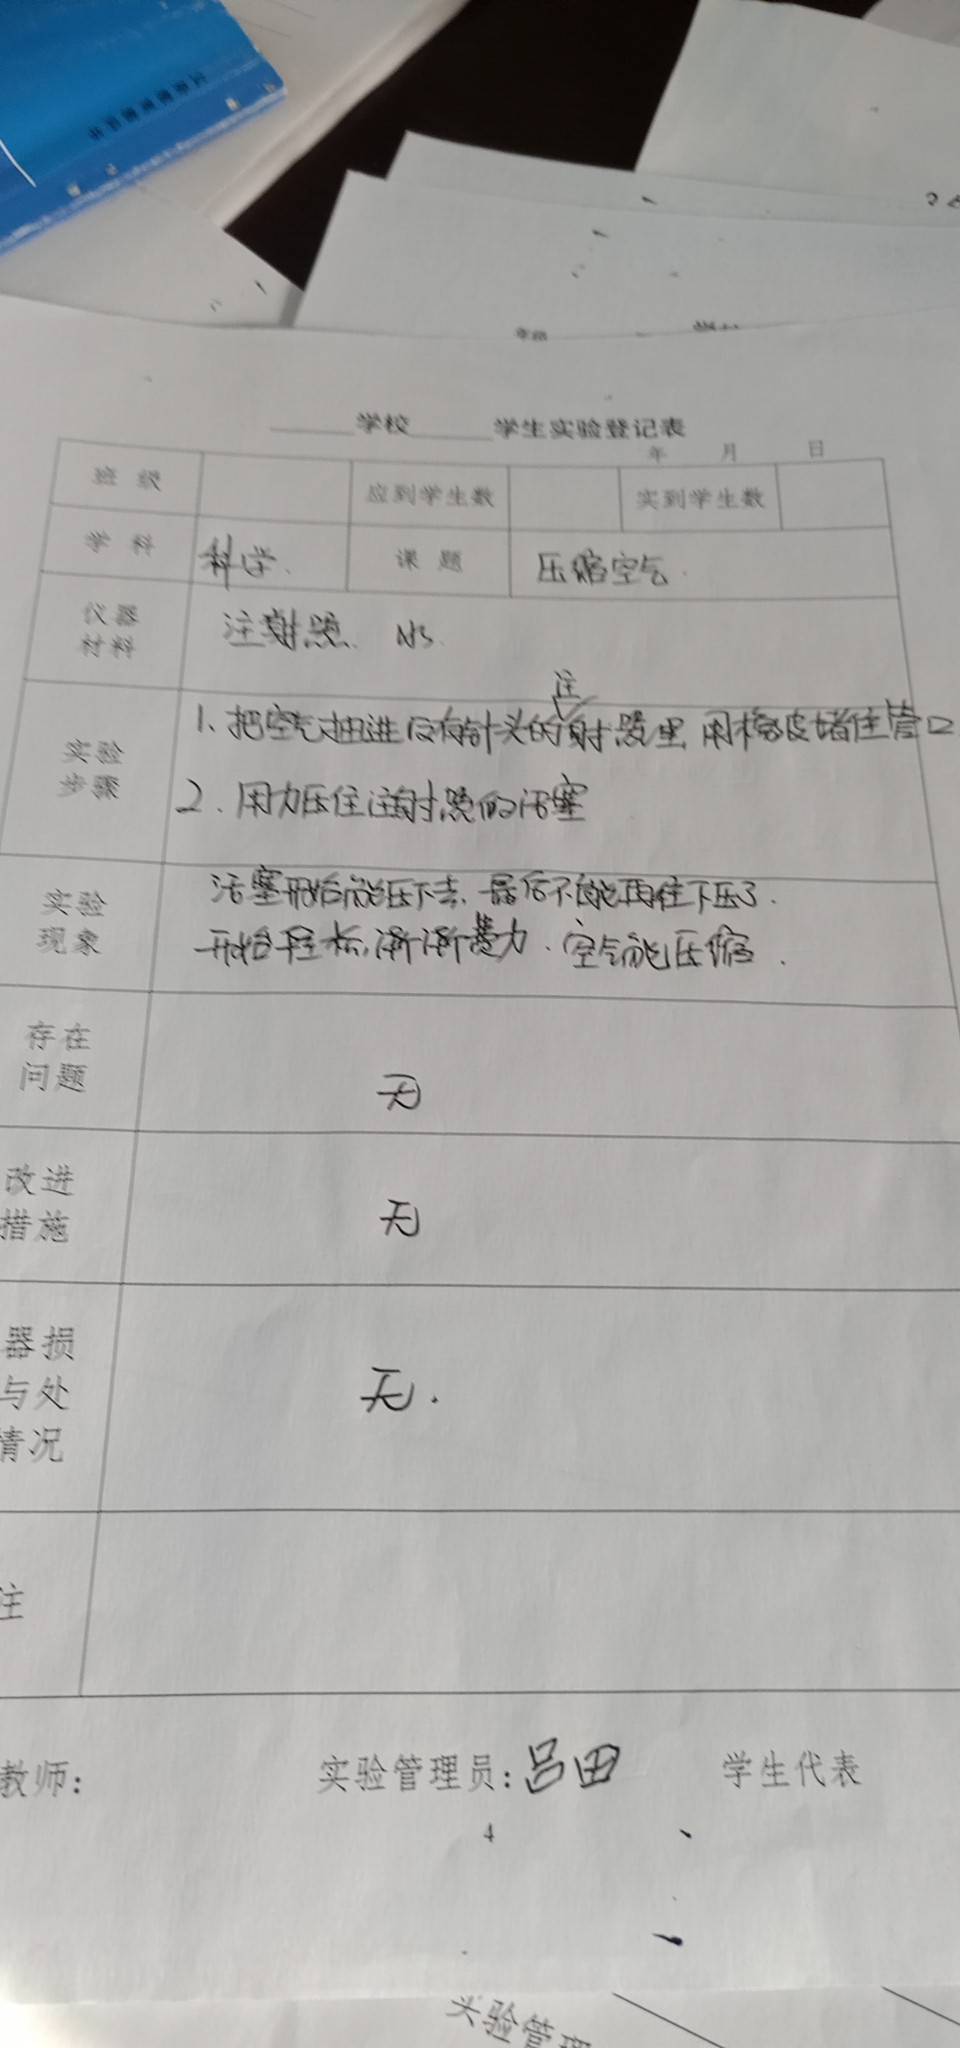 学校 学生实验登记表
年 月 日
班级 应到学生数 实到学生数
学科 科学. 课题 压缩空气.
仪器
材料
注射器.
实验
步骤
1. 把空气抽进没有针头的注射器里 用橡皮堵住管口
2. 用力压住注射器的活塞
实验
现象
活塞开始能压下去. 最后不能再往下压了.
开始 渐渐 力. 空气能压缩.
存在
问题
无
改进
措施
无
器损
与处
情况
无.
注
教师: 实验管理员: 吕田 学生代表
4
实验管理